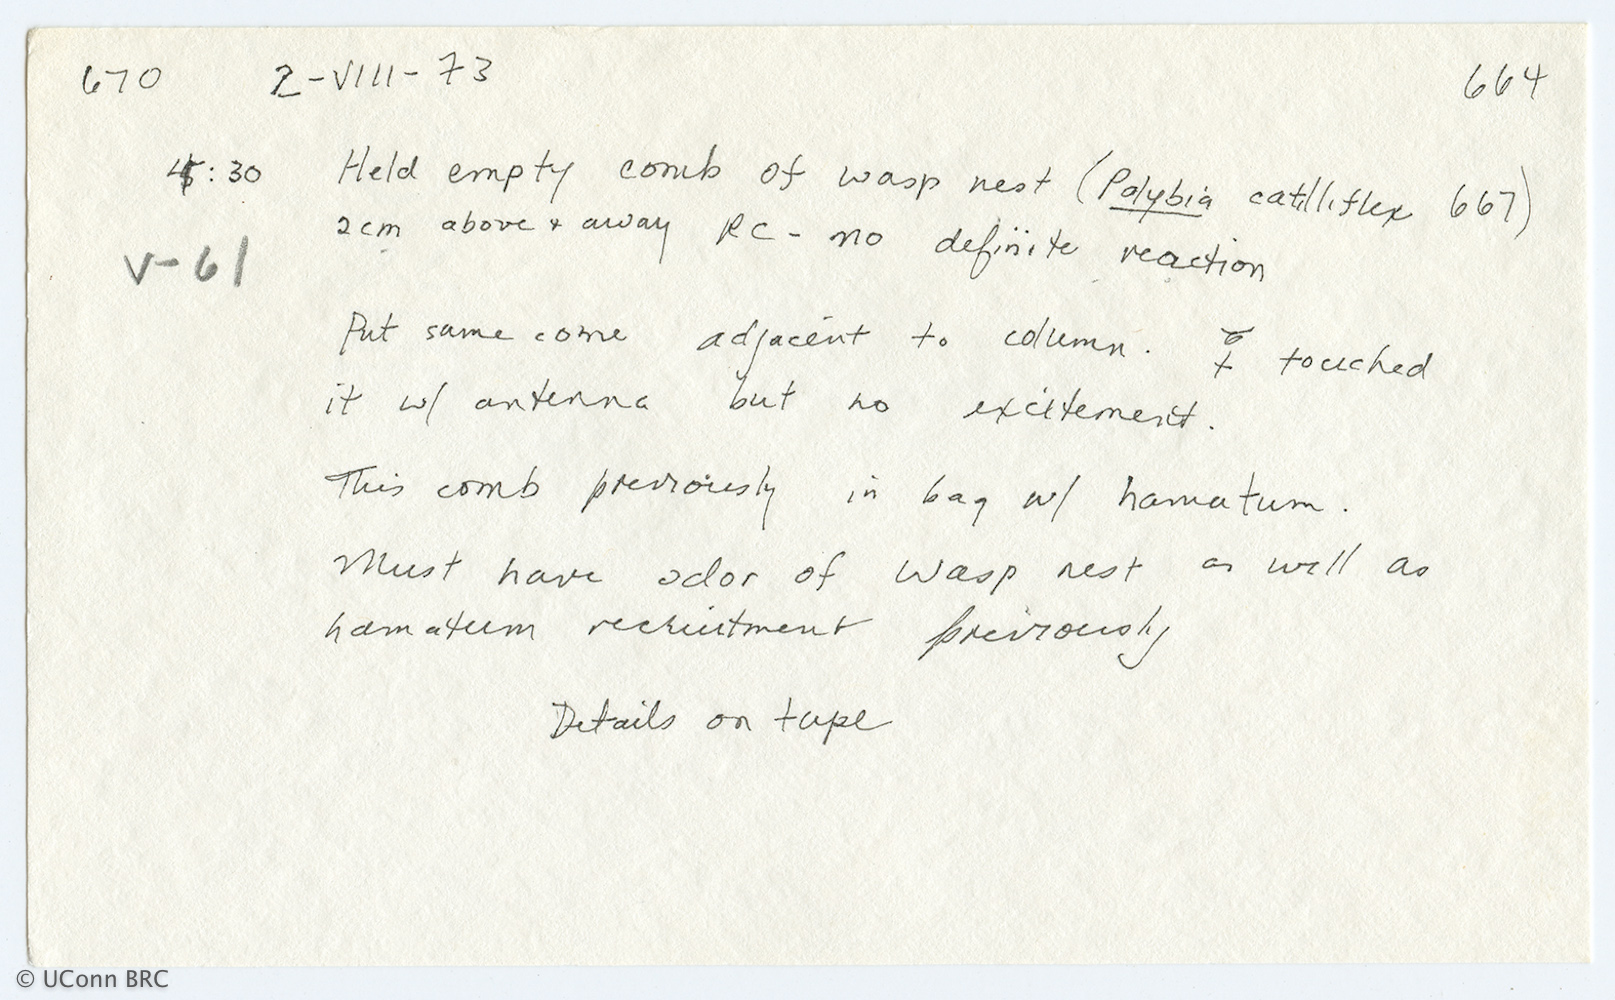 670 2-VIII-73 664
4:30 Held empty comb of wasp nest (Polybia catilliflex 667)
2cm above + away RC - no definite reaction
V-61
Put same come adjacent to column. ☿ touched
it w/ antenna but no excitement.
This comb previously in bag w/ hamatum.
Must have odor of wasp nest as well as
hamatum recruitment previously
Details on tape
© UConn BRC